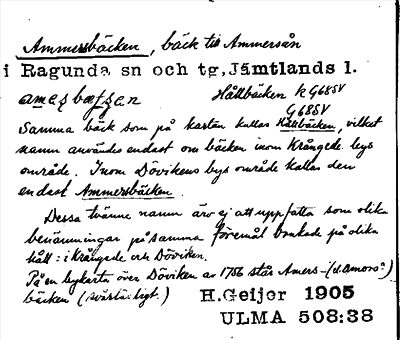 Ammersbäcken, bäck till Ammersån
i Ragunda sn och tg, Jämtlands l.
Hållbäcken k G68SV
G68SV
Samma bäck som på kartan kallas Hållbäcken, vilket
namn användes endast om bäcken inom Krångede bys
område. Inom Dövikens bys område kallas den
endast Ammersbäcken.
Dessa tvänne namn äro ej att uppfatta som olika
benämningar på samma föremål brukade på olika
håll: i Krångede och Döviken.
På en bykarta över Döviken av 1756 står Amers-
bäcken (oväsäntligt.)
H.Geijer 1905
ULMA 508:38